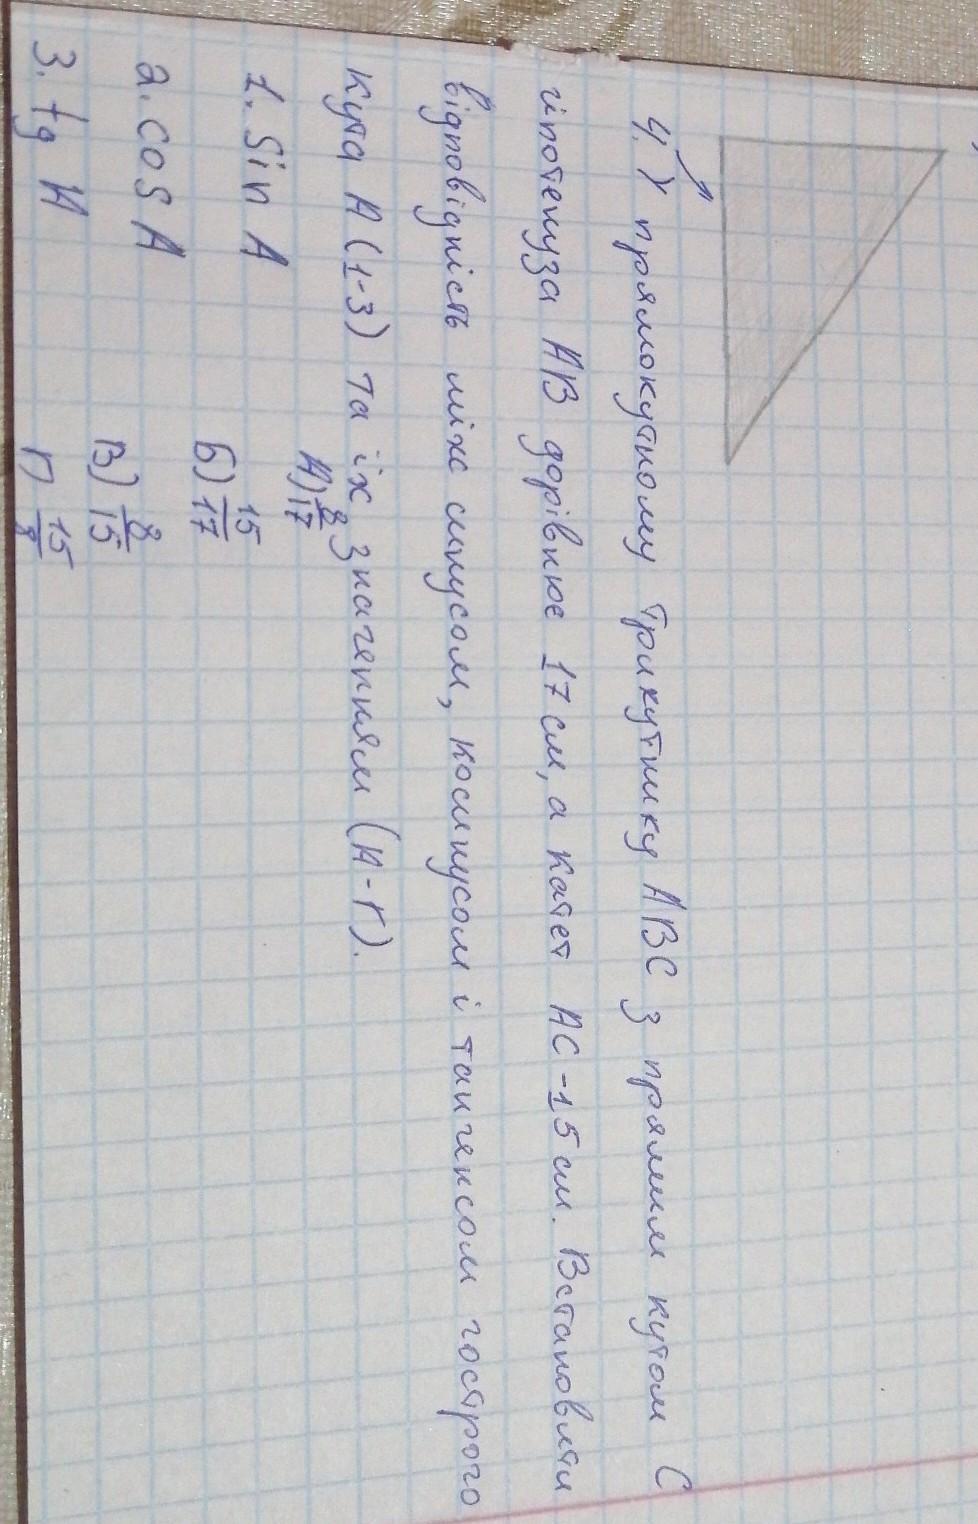 4. У прямокутному трикутнику ABC з прямим кутом C
гіпотенуза AB дорівнює 17 см, а катет AC - 15 см. Встановити
відповідність між синусом, косинусом і тангенсом гострого
кута A (1-3) та їх значенням (А-Г).
1. sin A А) 8/17
2. cos A Б) 15/17
3. tg A В) 8/15
Г) 15/8